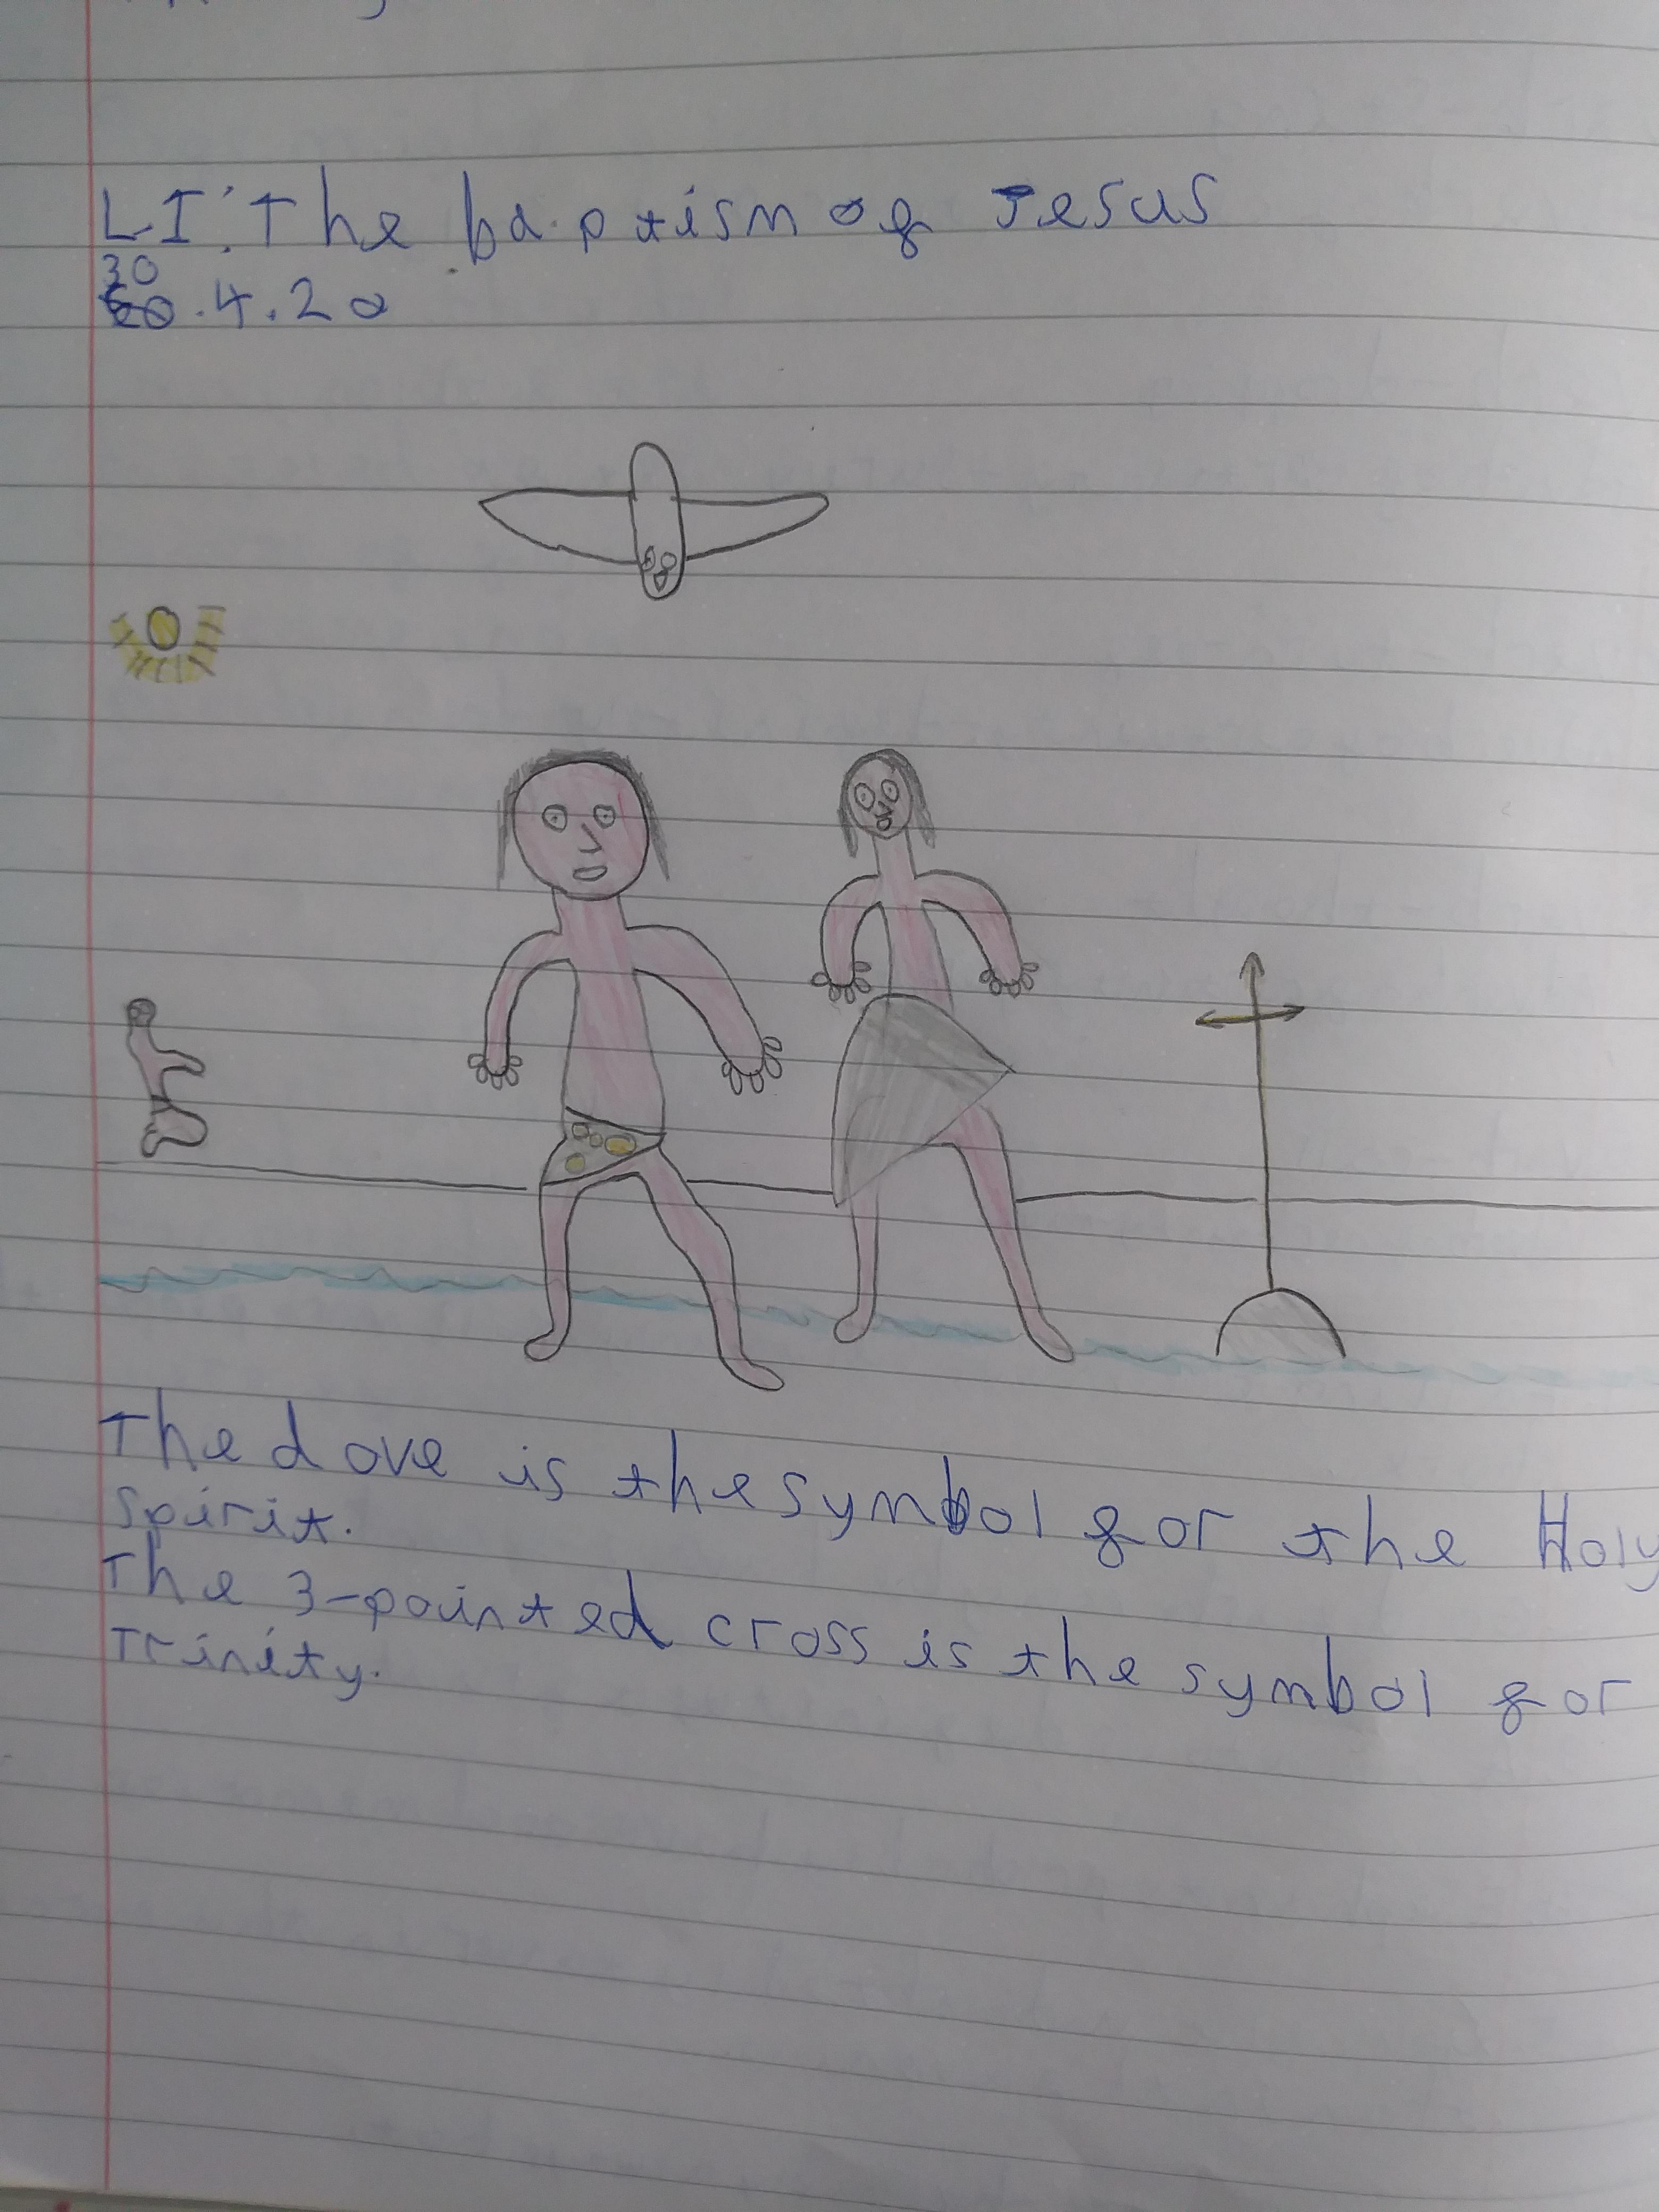 LI: The baptism of Jesus
30
.4.20
The dove is the symbol for the Holy
Spirit.
The 3-pointed cross is the symbol for
Trinity.